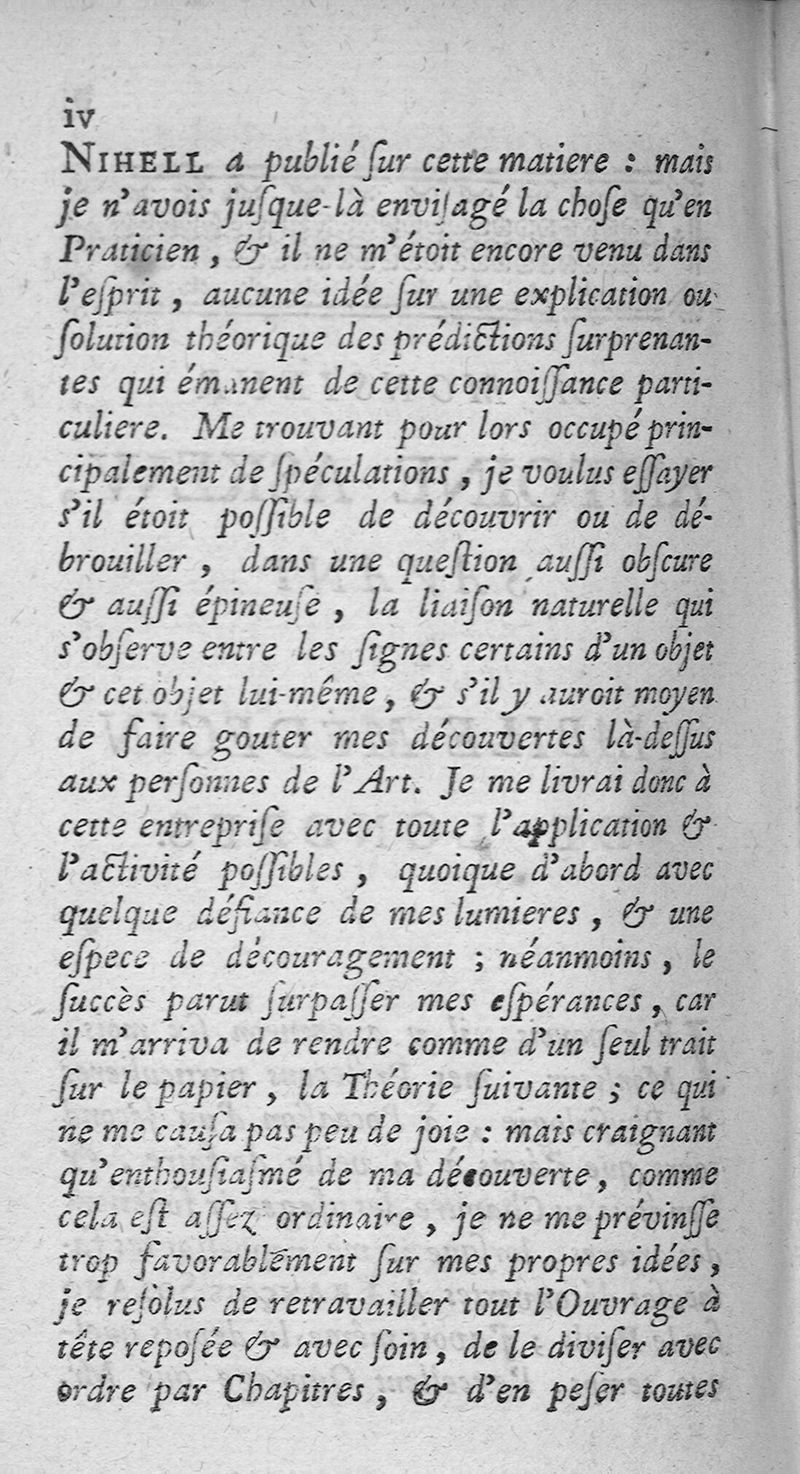 iv
NIHELL a publié ſur cette matiere : mais
je n'avois juſque-là enviſagé la choſe qu'en
Praticien , & il ne m'étoit encore venu dans
l'eſprit , aucune idée ſur une explication ou
ſolution théorique des prédictions ſurprenan-
tes qui émanent de cette connoiſſance parti-
culiere. Me trouvant pour lors occupé prin-
cipalement de ſpéculations , je voulus eſſayer
s'il étoit poſſible de découvrir ou de dé-
brouiller , dans une queſtion auſſi obſcure
& auſſi épineuſe , la liaiſon naturelle qui
s'obſerve entre les ſignes certains d'un objet
& cet objet lui-même , & s'il y auroit moyen
de faire gouter mes découvertes là-deſſus
aux perſonnes de l'Art. Je me livrai donc à
cette entrepriſe avec toute l'application &
l'activité poſſibles , quoique d'abord avec
quelque défiance de mes lumieres , & une
eſpece de découragement ; néanmoins , le
ſuccès parut ſurpaſſer mes eſpérances , car
il m'arriva de rendre comme d'un ſeul trait
ſur le papier , la Théorie ſuivante ; ce qui
ne me cauſa pas peu de joie : mais craignant
qu'enthouſiaſmé de ma découverte , comme
cela eſt aſſez ordinaire , je ne me prévinſſe
trop favorablement ſur mes propres idées ,
je reſolus de retravailler tout l'Ouvrage à
tête repoſée & avec ſoin , de le diviſer avec
ordre par Chapitres , & d'en peſer toutes